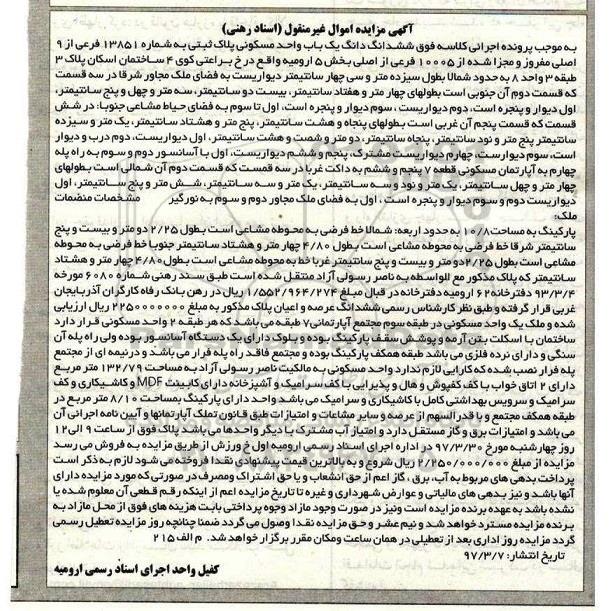 آگهی مزایده اموال غیرمنقول (اسناد رهنی)
به موجب پرونده اجرائی کلاسه فوق ششدانگ دانگ یک باب واحد مسکونی پلاک ثبتی به شماره ۱۳۸۵۱ فرعی از ۹
اصلی مفروز و مجزا شده از ۱۰۰۰۵ فرعی از اصلی بخش ۵ ارومیه واقع در خ براعتی کوی ۴ ساختمان اسکان پلاک ۳
طبقه ۳ واحد ۸ به حدود شمالا بطول سیزده متر و سی چهار سانتیمتر دیواریست به فضای ملک مجاور شرقا در سه قسمت
که قسمت دوم آن جنوبی است بطولهای چهار متر و هفتاد سانتیمتر، بیست دو سانتیمتر، سه متر و چهل و پنج سانتیمتر،
اول دیوار و پنجره است، دوم دیواریست، سوم دیوار و پنجره است، اول تا سوم به فضای حیاط مشاعی جنوبا: در شش
قسمت که قسمت پنجم آن غربی است بطولهای پنجاه و هشت سانتیمتر، پنج متر و هشتاد سانتیمتر، یک متر و سیزده
سانتیمتر پنج متر و نود سانتیمتر، پنجاه سانتیمتر، دو متر و شصت و هشت سانتیمتر، اول دیواریست، دوم درب و دیوار
است، سوم دیوارست، چهارم دیواریست مشترک، پنجم و ششم دیواریست، اول با آسانسور دوم و سوم به راه پله
چهارم به آپارتمان مسکونی قطعه ۷ پنجم و ششم به داکت غربا در سه قمست که قسمت دوم آن شمالی است بطولهای
چهار متر و چهل سانتیمتر، یک متر و نود و سه سانتیمتر، یک متر و سه سانتیمتر، شش متر و پنج سانتیمتر، اول
دیواریست دوم و سوم دیوار و پنجره است، اول به فضای ملک مجاور دوم و سوم به نورگیر مشخصات منضمات
ملک:
پارکینگ به مساحت ۱۰/۸ به حدود اربعه: شمالا خط فرضی به محوطه مشاعی است بطول ۲/۲۵ دو متر و بیست و پنج
سانتیمتر شرقا خط فرضی به محوطه مشاعی است بطول ۴/۸۰ چهار متر و هشتاد سانتیمتر جنوبا خط فرضی به محوطه
مشاعی است بطول ۲/۲۵ دو متر و بیست و پنج سانتیمتر غربا خط به محوطه مشاعی است بطول ۴/۸۰ چهار متر و هشتاد
سانتیمتر که پلاک مذکور مع الواسطه به ناصر رسولی آزاد منتقل شده است طبق سند رهنی شماره ۶۰۸۰ مورخه
۹۳/۳/۴ دفترخانه ۶۲ ارومیه دفترخانه در قبال مبلغ ۱/۵۵۲/۹۶۴/۲۷۴ ریال در رهن بانک رفاه کارگران آذربایجان
غربی قرار گرفته و طبق نظر کارشناس رسمی ششدانگ عرصه و اعیان پلاک مذکور به مبلغ ۲۲۵۰۰۰۰۰۰۰ ریال ارزیابی
شده و ملک یک واحد مسکونی در طبقه سوم مجتمع آپارتمانی ۷ طبقه می باشد که هر طبقه ۲ واحد مسکونی قرار دارد
ساختمان با اسکلت بتن آرمه و پوشش سقف پارکینگ بوده و بلوک دارای یک دستگاه آسانسور بوده ولی راه پله آن
سنگی و دارای نرده فلزی می باشد طبقه همکف پارکینگ بوده و مجتمع فاقد راه پله فرار می باشد و در نیمه ای از مجتمع
پله فرار نصب شده که کارایی لازم ندارد واحد مسکونی به مالکیت ناصر رسولی آزاد به مساحت ۱۳۲/۷۹ متر مربع
دارای ۲ اتاق خواب با کف کفپوش و هال و پذیرایی با کف سرامیک و آشپزخانه دارای کابینت MDF و کاشیکاری و کف
سرامیک و سرویس بهداشتی کامل با کاشیکاری و سرامیک می باشد واحد دارای پارکینگ بمساحت ۸/۱۰ متر مربع در
طبقه همکف مجتمع و با قدر السهم از عرصه و سایر مشاعات و امتیازات طبق قانون تملک آپارتمانها و آیین نامه اجرائی آن
می باشد و امتیازات برق و گاز مستقل دارد و امتیاز آب مشترک با دیگر واحدها می باشد پلاک فوق از ساعت ۹ الی ۱۲
روز چهارشنبه مورخ ۹۷/۳/۳۰ در اداره اجرای اسناد رسمی ارومیه اول خ ورزش از طریق مزایده به فروش می رسد
مزایده از مبلغ ۲/۲۵۰/۰۰۰/۰۰۰ ریال شروع و به بالاترین قیمت پیشنهادی نقدا فروخته می شود لازم به ذکر است
پرداخت بدهی های مربوط به آب، برق، گاز اعم از حق انشعاب و یا حق اشتراک و مصرف در صورتی که مورد مزایده دارای
آنها باشد و نیز بدهی های مالیاتی و عوارض شهرداری و غیره تا تاریخ مزایده اعم از اینکه رقم قطعی آن معلوم شده یا
نشده باشد به عهده برنده مزایده است ونیز در صورت وجود مازاد وجوه پرداختی بابت هزینه های فوق از محل مازاد به
برنده مزایده مسترد خواهد شد و نیم عشر و حق مزایده نقدا وصول می گردد ضمنا چنانچه روز مزایده تعطیل رسمی
گردد مزایده روز اداری بعد از تعطیلی در همان ساعت ومکان مقرر برگزار خواهد شد. م الف ۲۱۵
تاریخ انتشار: ۹۷/۳/۷
کفیل واحد اجرای اسناد رسمی ارومیه